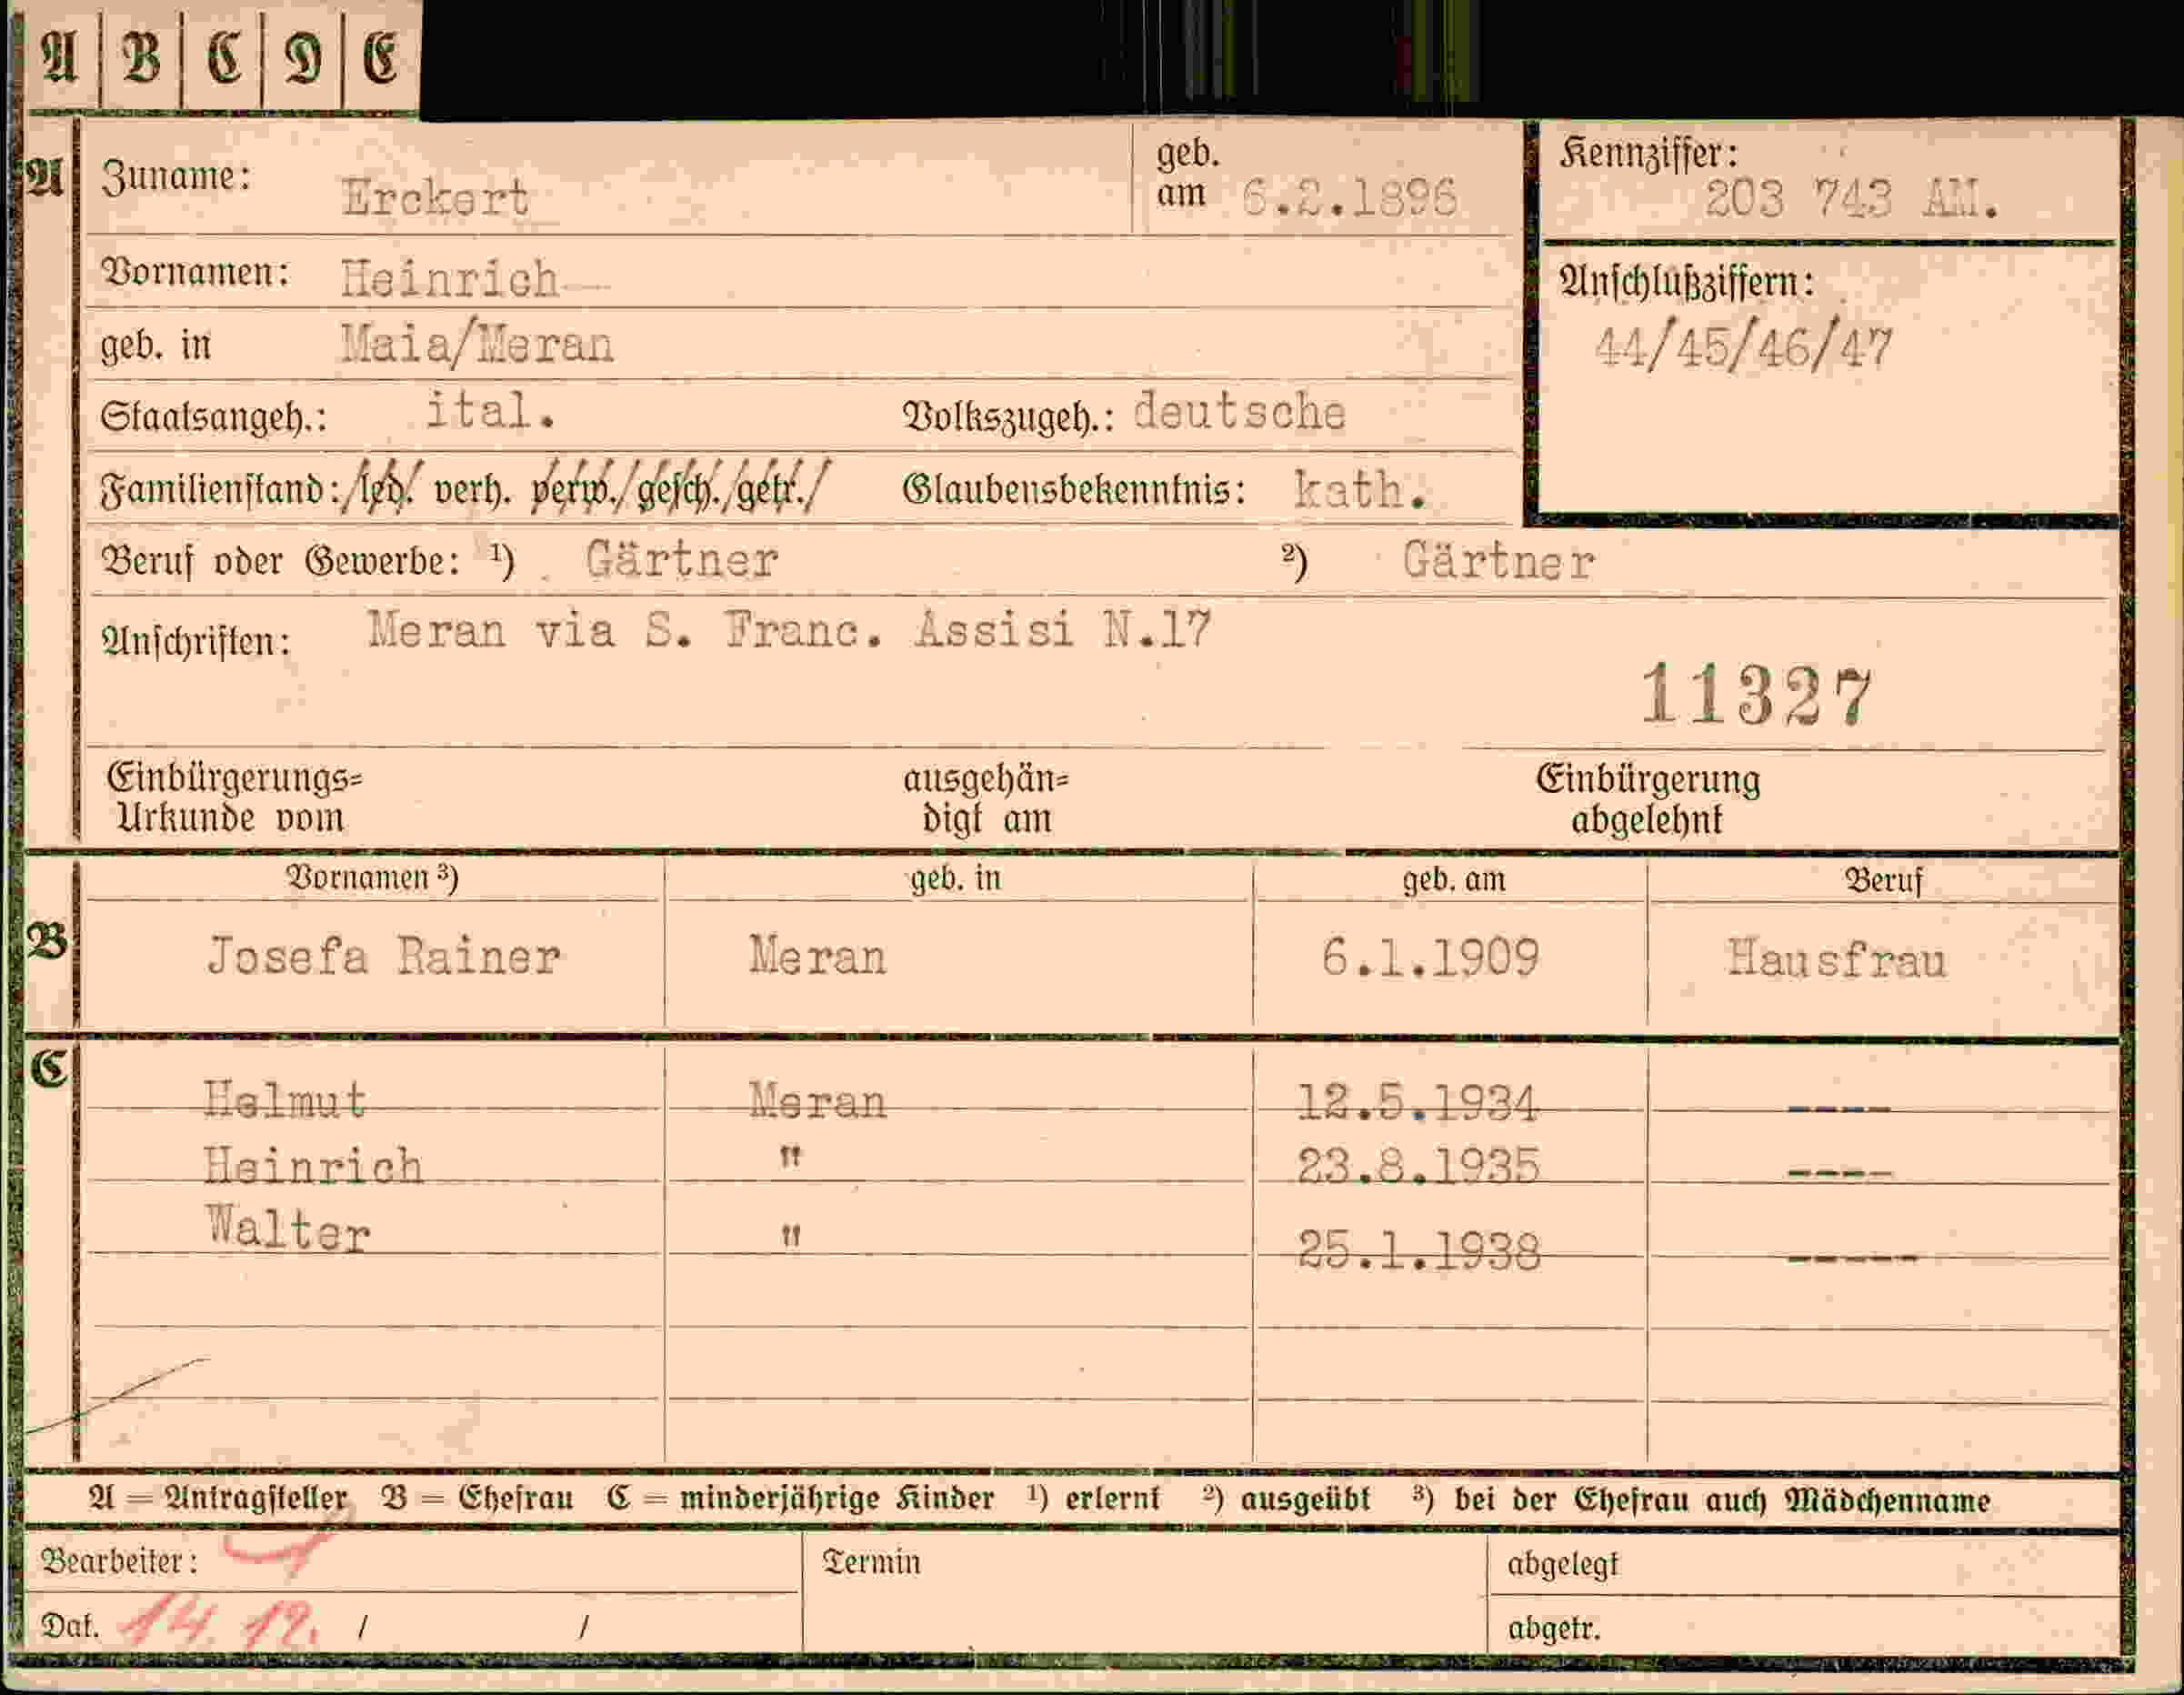 A B C D E
A
Zuname: Erckert
geb. am 6.2.1896
Kennziffer: 203 743 AM.
Vornamen: Heinrich
Anschlußziffern:
44/45/46/47
geb. in Maia/Meran
Staatsangeh.: ital. Volkszugeh.: deutsche
Familienstand: led. verh. verw. gesch. getr. Glaubensbekenntnis: kath.
Beruf oder Gewerbe: ¹) Gärtner ²) Gärtner
Anschriften: Meran via S. Franc. Assisi N.17
11327
Einbürgerungs= ausgehän= Einbürgerung
Urkunde vom digt am abgelehnt
Vornamen ³) geb. in geb. am Beruf
B Josefa Rainer Meran 6.1.1909 Hausfrau
C
Helmut Meran 12.5.1934 ----
Heinrich " 23.8.1935 ----
Walter " 25.1.1938 -----
A = Antragsteller B = Ehefrau C = minderjährige Kinder ¹) erlernt ²) ausgeübt ³) bei der Ehefrau auch Mädchenname
Bearbeiter: Termin abgelegt
Dat. 14. 12. / / abgetr.